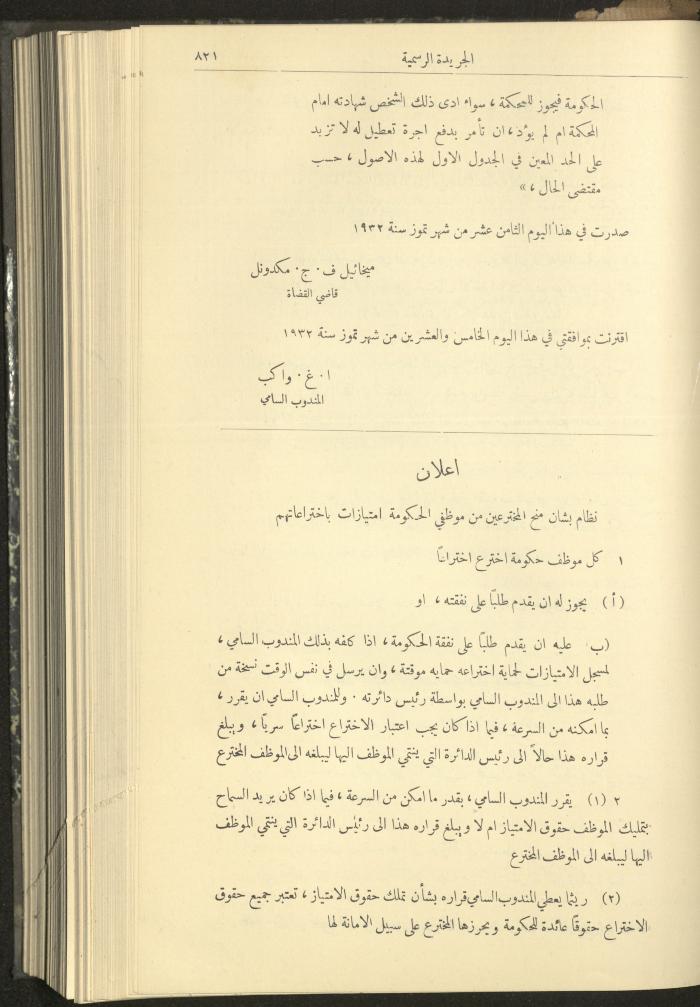 الجريدة الرسمية ٨٢١
الحكومة فيجوز للمحكمة ، سواء ادى ذلك الشخص شهادته امام
المحكمة ام لم يؤد ، ان تأمر بدفع اجرة تعطيل له لا تزيد
على الحد المعين في الجدول الاول لهذه الاصول ، حسب
مقتضى الحال ، »
صدرت في هذا اليوم الثامن عشر من شهر تموز سنة ١٩٣٢
ميخائيل ف . ج . مكدونل
قاضي القضاة
اقترنت بموافقتي في هذا اليوم الخامس والعشرين من شهر تموز سنة ١٩٣٢
ا . غ . واكب
المندوب السامي
اعلان
نظام بشان منح المخترعين من موظفي الحكومة امتيازات باختراعاتهم
١ كل موظف حكومة اخترع اختراعًا
(أ) يجوز له ان يقدم طلبًا على نفقته ، او
(ب عليه ان يقدم طلبًا على نفقة الحكومة ، اذا كلفه بذلك المندوب السامي ،
لمسجل الامتيازات لحماية اختراعه حمايه موقتة ، وان يرسل في نفس الوقت نسخة من
طلبه هذا الى المندوب السامي بواسطة رئيس دائرته . وللمندوب السامي ان يقرر ،
بما امكنه من السرعة ، فيما اذا كان يجب اعتبار الاختراع اختراعًا سريًا ، ويبلغ
قراره هذا حالاً الى رئيس الدائرة التي ينتمي الموظف اليها ليبلغه الى الموظف المخترع
٢ (١) يقرر المندوب السامي ، بقدر ما امكن من السرعة ، فيما اذا كان يريد السماح
بتمليك الموظف حقوق الامتياز ام لا ويبلغ قراره هذا الى رئيس الدائرة التي ينتمي الموظف
اليها ليبلغه الى الموظف المخترع
(٢) ريثما يعطي المندوب السامي قراره بشأن تملك حقوق الامتياز ، تعتبر جميع حقوق
الاختراع حقوقًا عائدة للحكومة ويحرزها المخترع على سبيل الامانة لها